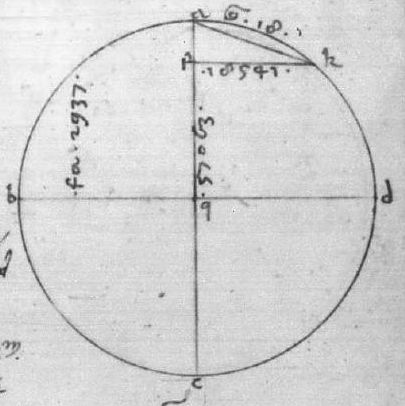 a
.18.
f
.18541.
k
.fa. 2937.
.57063.
q
d
c